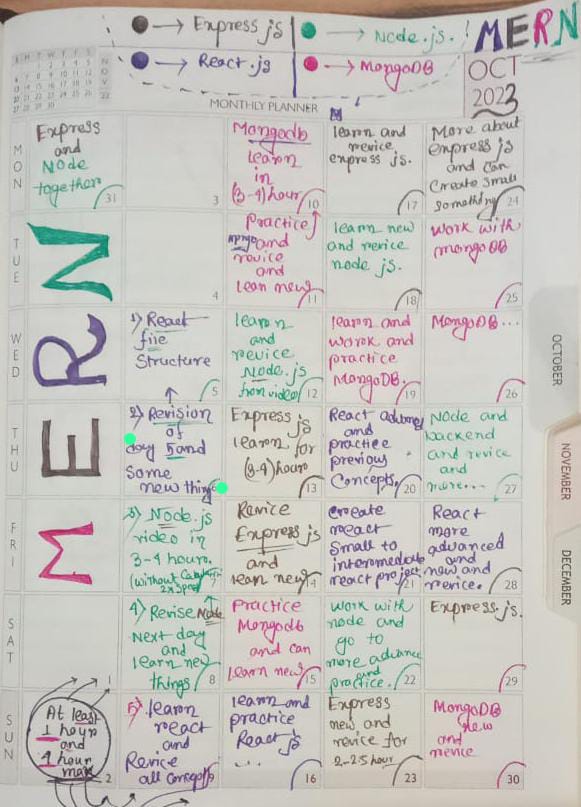 Express js
Node.js.
React.js
MongoDB
MERN
OCT
2023
MONTHLY PLANNER
MON
Express
and
Node
together
31
3
Mongodb
learn
in
(3-4) hour
10
learn and
revice
express js.
17
More about
express js
and can
Create small
something
24
TUE
4
Practice
and
revice
and
lean new
11
learn new
and revice
node js.
18
work with
mongoDB
25
WED
1) React
file
Structure
5
learn
and
revice
Node.js
from video
12
learn and
work and
practice
MongoDB.
19
MongoDB...
26
THU
2) Revision
of
day 5 and
some
new thing
6
Express js
learn for
(3-4) hours
13
React
and
practice
previous
Concepts,
20
Node and
backend
and revice
and
more....
27
FRI
3) Node.js
video in
3-4 hours.
(without
7
Revice
Express js
and
lean new
14
create
react
small to
intermediate
react project
21
React
more
advanced
and
new and
revice.
28
SAT
1
4) Revise Node
Next day
and
learn new
things
8
Practice
Mongodb
and can
learn new
15
work with
node and
go to
more advance
and
practice.
22
Express.js.
29
SUN
At least
1 hour
and
4 hour
max
2
5) learn
react
and
Revice
all concepts
9
learn and
practice
React js
...
16
Express
new and
revice for
2-2.5 hour
23
MongoDB
new
and
revice
30
MERN
OCTOBER
NOVEMBER
DECEMBER